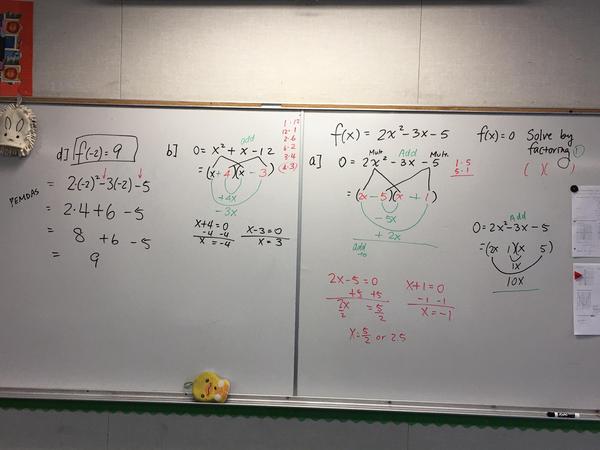 d] f(-2) = 9
PEMDAS
= 2·(-2)² -3(-2) -5
= 2·4 +6 -5
= 8 +6 -5
= 9
b] 0 = x² + x -12
add
= (x + 4)(x - 3)
+4x
-3x
x+4=0
-4 -4
x = -4
x-3=0
x = 3
1·12
12·1
2·6
6·2
3·4
4·3
f(x) = 2x²-3x-5
f(x)=0 Solve by
factoring
( )( )
a] 0 = 2x² -3x -5
Mult. Add Mult.
1·5
5·1
= (2x - 5)(x + 1)
-5x
+ 2x
add
to
2x-5=0
+5 +5
2x = 5
2 2
x = 5/2 or 2.5
x+1=0
-1 -1
x = -1
Add
0 = 2x²-3x-5
=(2x 1)(x 5)
1x
10x